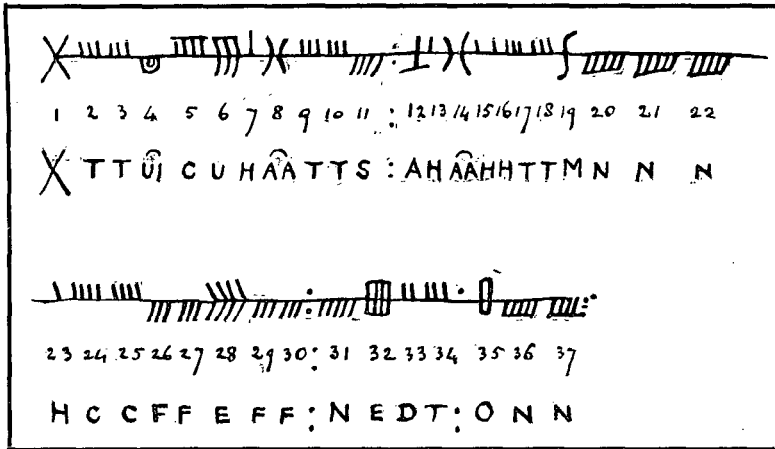 1 2 3 4 5 6 7 8 9 10 11 : 12 13 14 15 16 17 18 19 20 21 22
X T T U͡I C U H A͡A T T S : A H A͡A H H T T M N N N
23 24 25 26 27 28 29 30 : 31 32 33 34 35 36 37
H C C F F E F F : N E D T : O N N